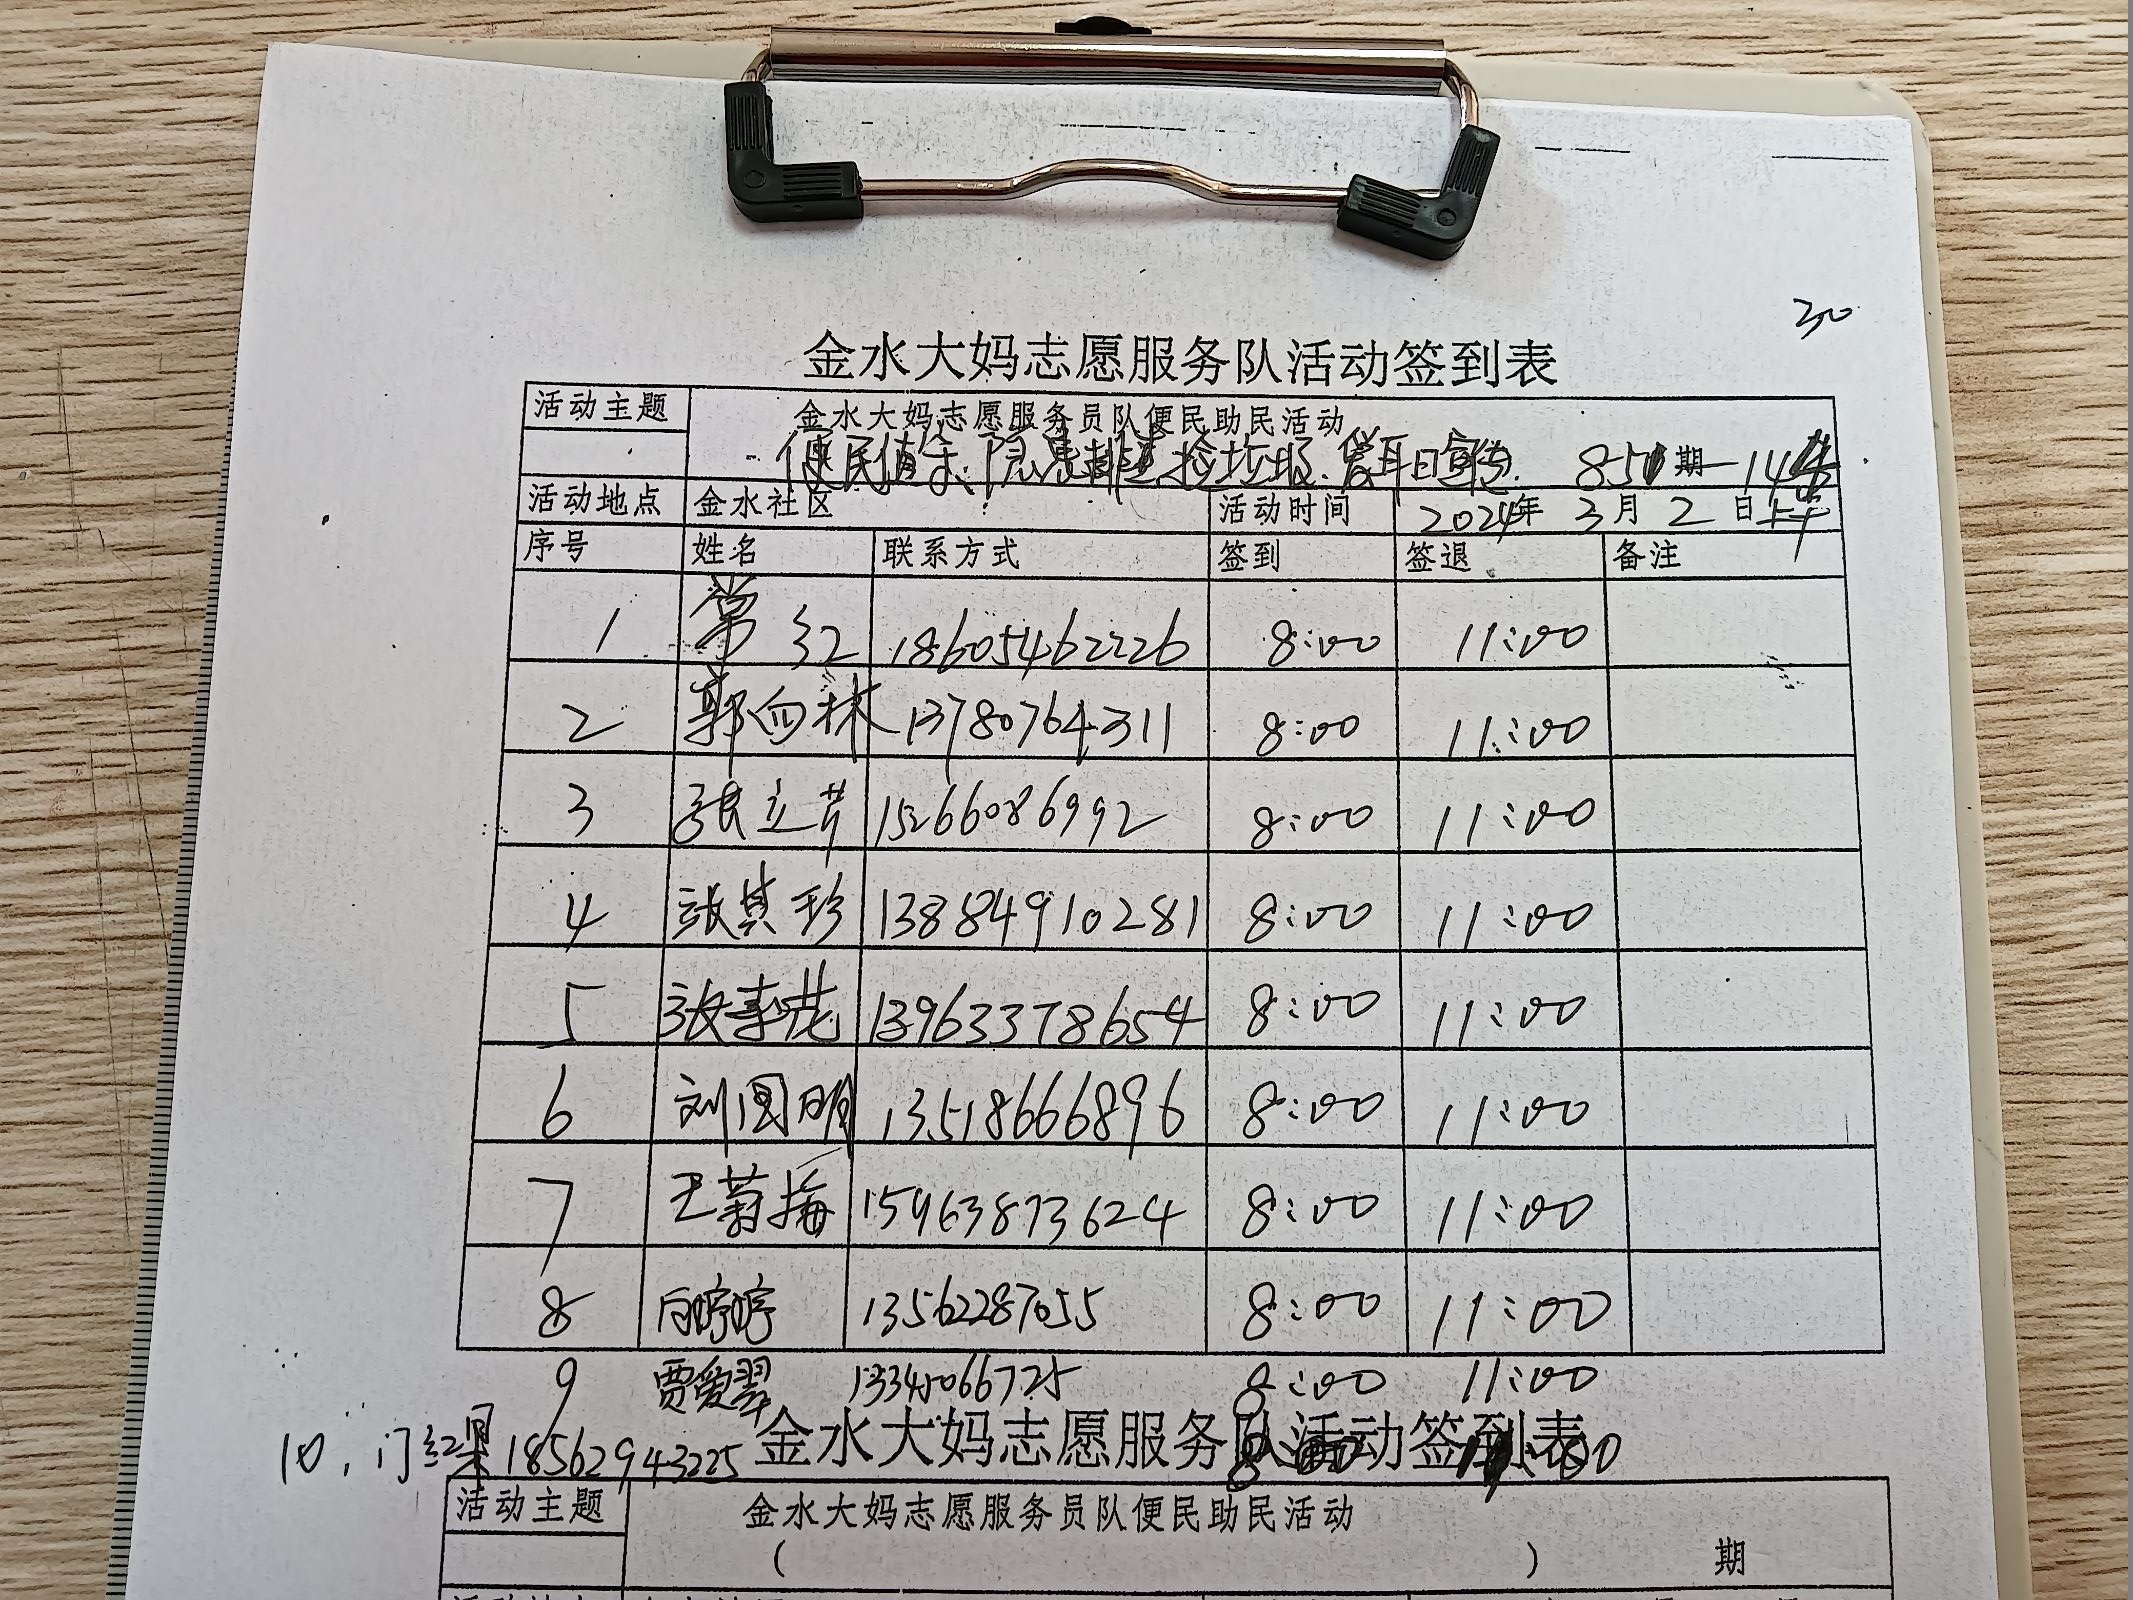 30
金水大妈志愿服务队活动签到表
活动主题 金水大妈志愿服务员队便民助民活动
便民值余、隐患排查捡垃圾、爱耳日宣传. 851期—14
活动地点 金水社区 活动时间 2024年 3月 2日上午
序号 姓名 联系方式 签到 签退 备注
1 常红 18605462226 8:00 11:00
2 郭向林 13780764311 8:00 11:00
3 张立芹 15266086992 8:00 11:00
4 张其珍 13884910281 8:00 11:00
5 张 13963378654 8:00 11:00
6 刘国明 13518666896 8:00 11:00
7 王菊梅 15963873624 8:00 11:00
8 婷婷 13562287055 8:00 11:00
9 贾爱翠 13345066725 8:00 11:00
10, 门红果 18562943225
金水大妈志愿服务队活动签到表
活动主题 金水大妈志愿服务员队便民助民活动
( ) 期